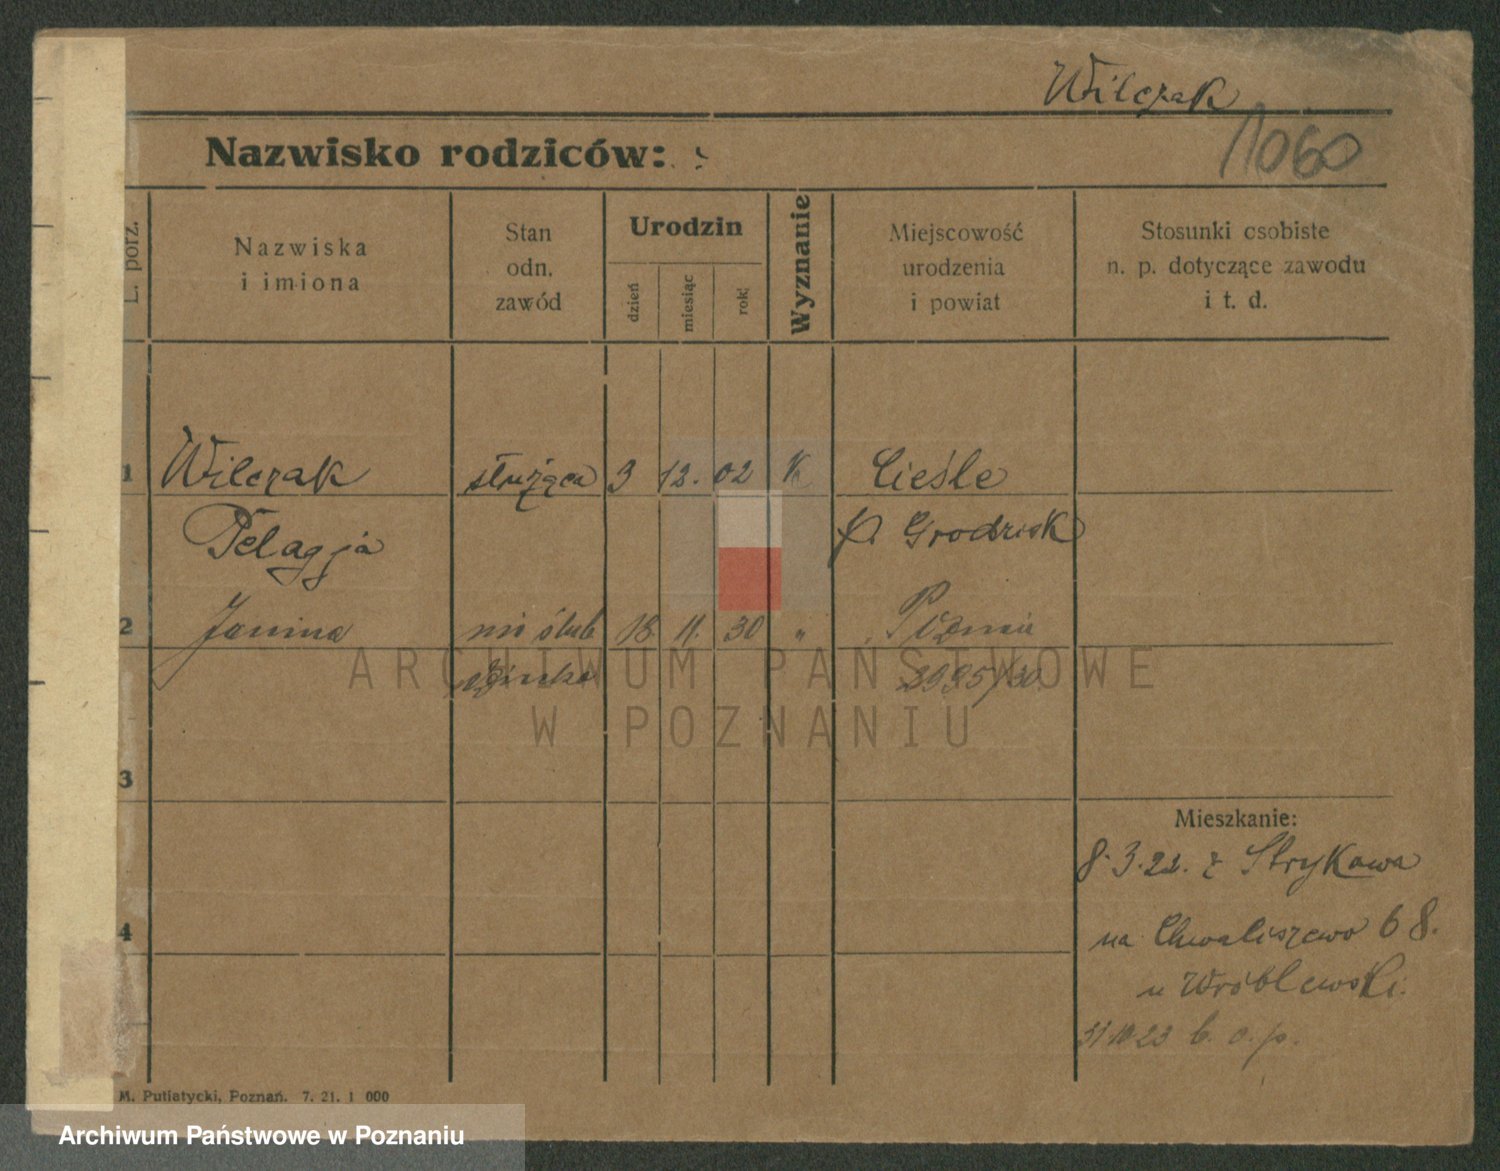 Wilczak
Nazwisko rodziców:
1060
L. porz.
Nazwiska
i imiona
Stan
odn.
zawód
Urodzin
dzień
miesiąc
rok
Wyznanie
Miejscowość
urodzenia
i powiat
Stosunki osobiste
n. p. dotyczące zawodu
i t. d.
1 Wilczak służąca 3 12. 02 K Cieśle
Pelagja p. Grodzisk
2 Janina 18. 11. 30 „ Poznań
2995/30
ARCHIWUM PAŃSTWOWE
W POZNANIU
3
Mieszkanie:
8.3.22. z Strykowa
4
na Chwaliszewo 68.
u Wróblewski.
31 10 23 b. o. p.
M. Putiatycki, Poznań. 7. 21. 1 000
Archiwum Państwowe w Poznaniu